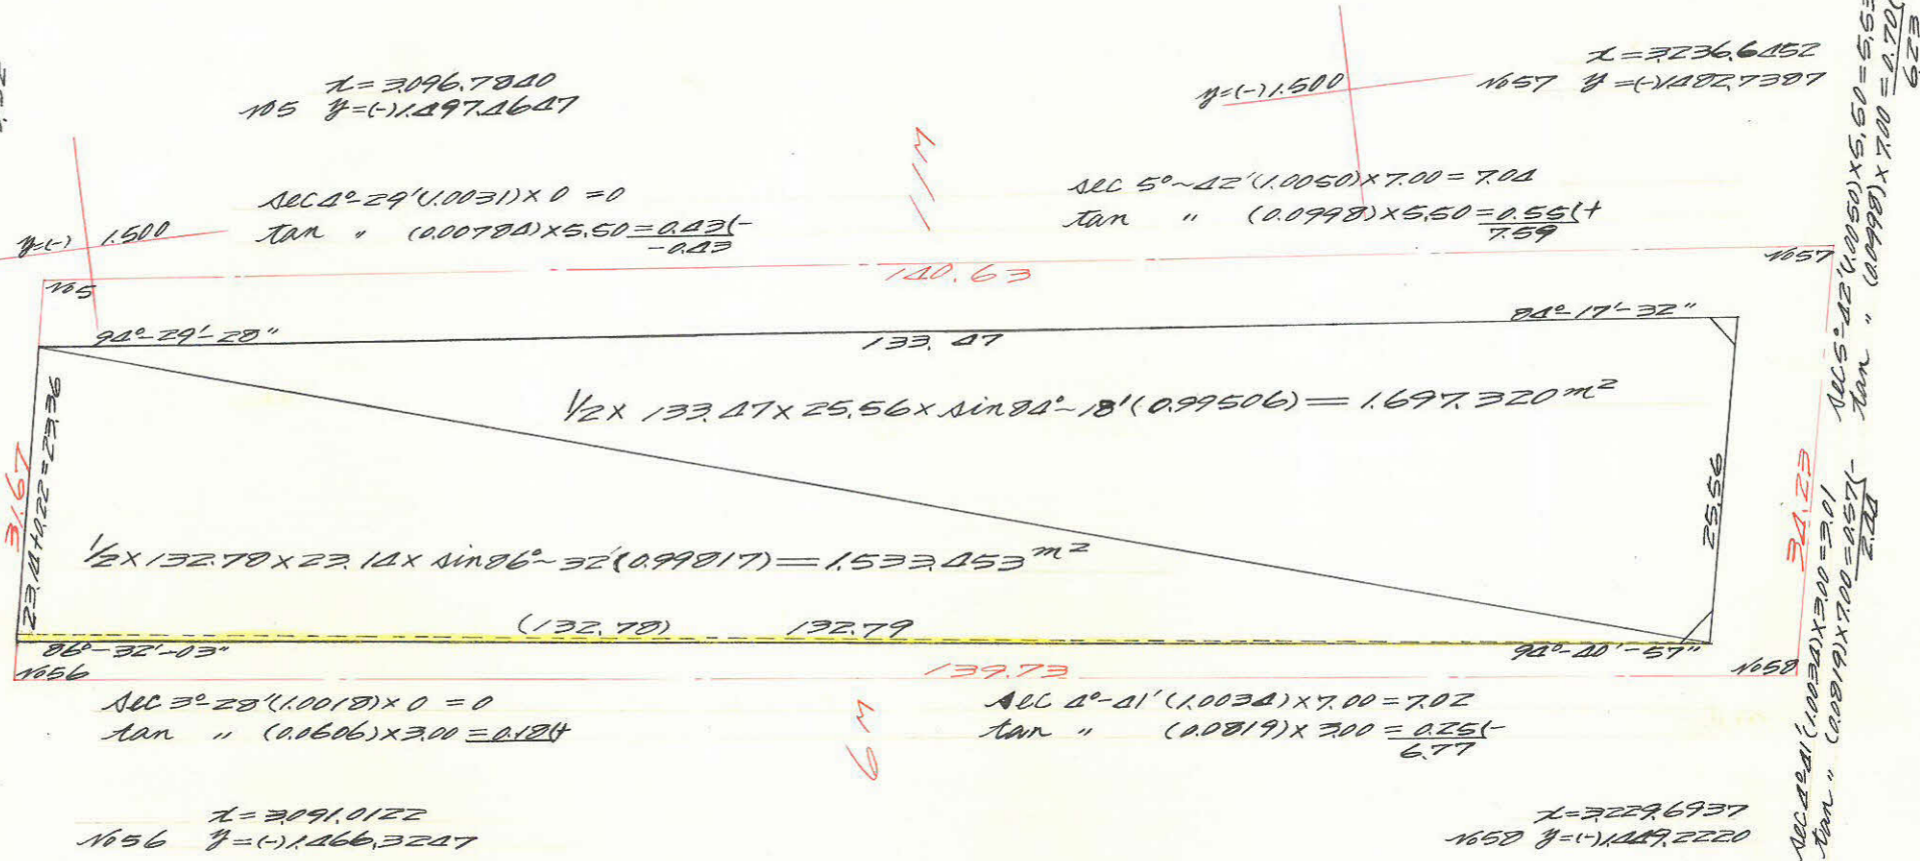 x=3.096.7840
No5 y=(-)1.497.4647
x=3.236.6452
No57 y=(-)1.482.7387
y=(-)1.500
sec 4°-29'(1.0031)×0=0
tan 〃 (0.00784)×5.50=0.43(-
-0.43
11M
sec 5°~42'(1.0050)×7.00=7.04
tan 〃 (0.0998)×5.50=0.55(+
7.59
y=(-) 1.500
140.63
No5
No57
94°-29'-28"
133.47
84°-17'-32"
1/2×133.47×25.56×sin84°~18'(0.99506)=1.697.320m²
31.67
23.14+0.22=23.36
25.56
34.23
1/2×132.78×23.14×sin86°~32'(0.99817)=1.533.453m²
(132.78) 132.79
86°-32'-03"
94°-40'-57"
No56
139.73
No58
sec 3°-28'(1.0018)×0=0
tan 〃 (0.0606)×3.00=0.18(+
6M
sec 4°-41'(1.0034)×7.00=7.02
tan 〃 (0.0819)×3.00=0.25(-
6.77
x=3.091.0122
No56 y=(-)1.466.3247
x=3.229.6937
No58 y=(-)1.449.2220
sec 5°-42'(1.0050)×5.50=5.53
tan 〃 (0.0998)×7.00=0.70(
6.23
sec 4°-41'(1.0034)×3.00=3.01
tan 〃 (0.0819)×7.00=0.57(-
2.44